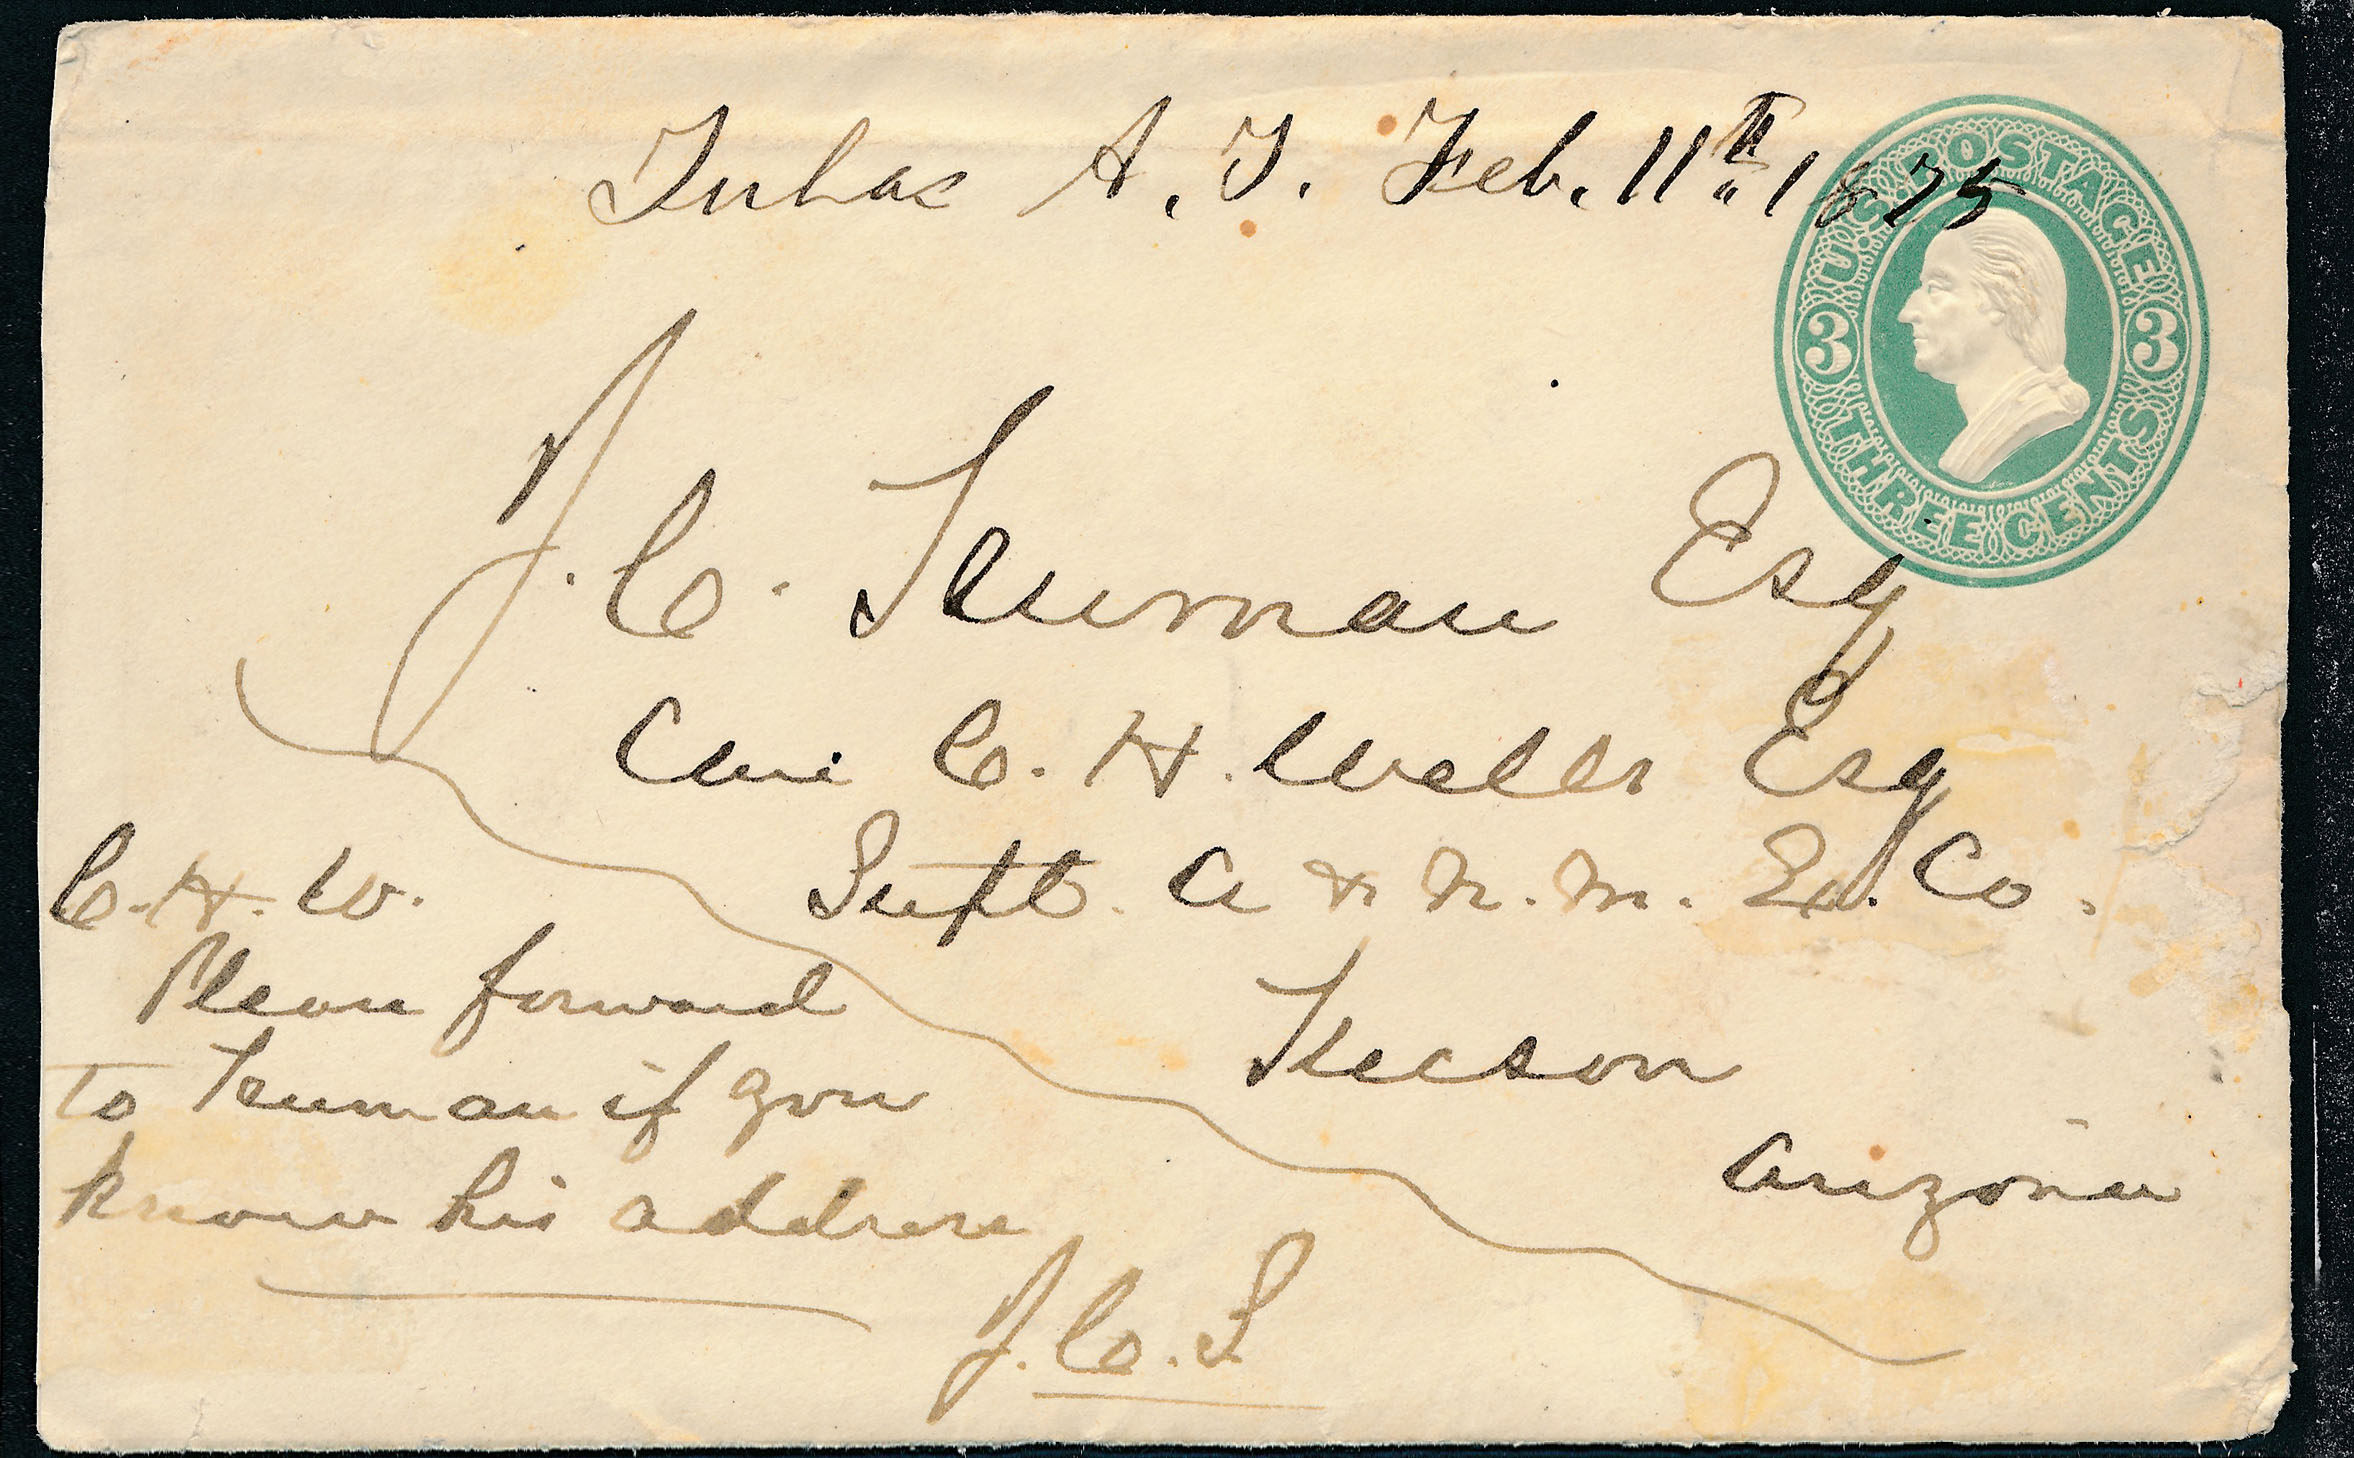 Tubac A. T. Feb. 11th 1875
U.S. POSTAGE
3 3
THREE CENTS
J. C. Truman Esq
Care C. H. Wells Esq
Supt. A & N. M. Ex. Co.
Tucson
Arizona
C. H. W.
Please forward
to Truman if you
know his address
J. C. S.